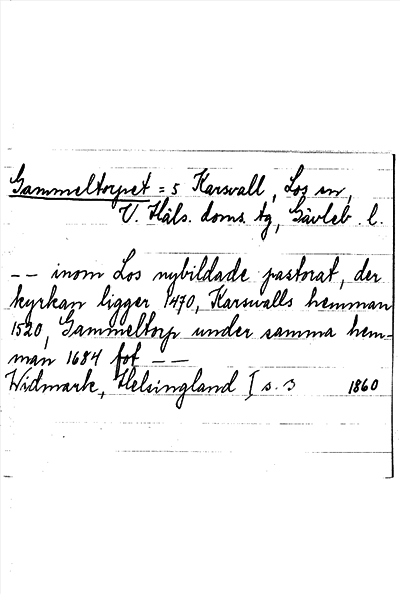 Gammeltorpet = s Karsvall, Los sn,
V. Häls. doms. tg, Gävleb. l.
-- inom Los nybildade pastorat, der
kyrkan ligger 1470, Karsvalls hemman
1520, Gammeltorp under samma hem-
man 1684 fot --
Widmark, Helsingland I s. 3 1860